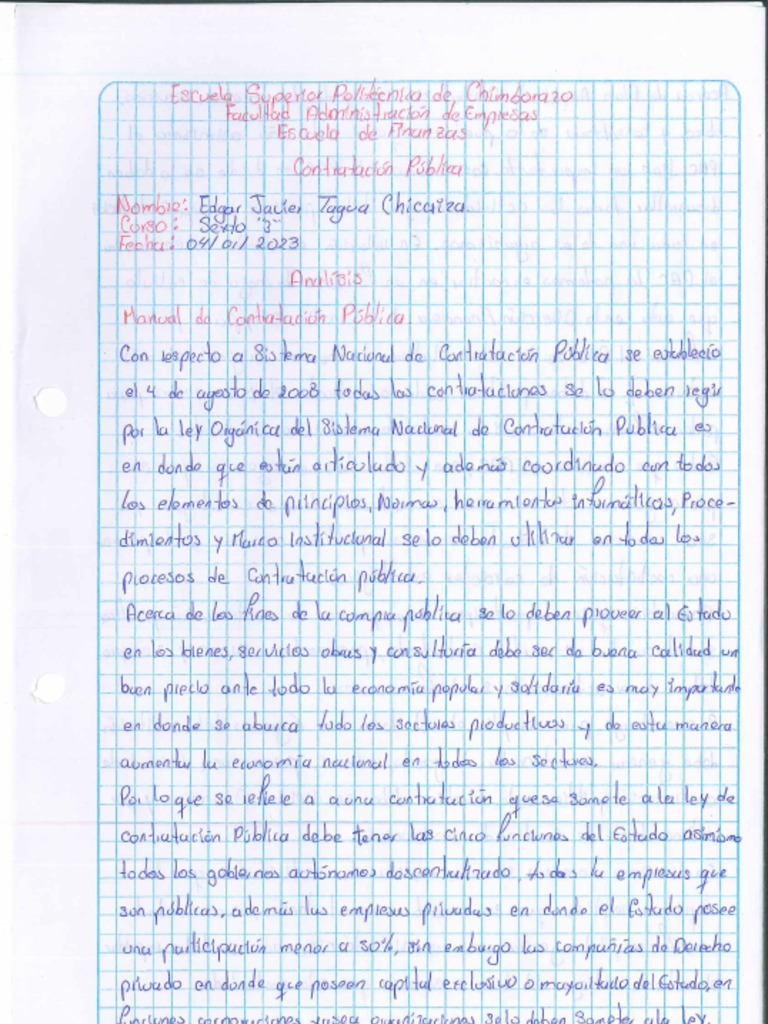 Escuela Superior Politécnica de Chimborazo
Facultad Administración de Empresas
Escuela de Finanzas
Contratación Pública
Nombre: Edgar Javier Tagua Chicaiza
Curso: Sexto "3"
Fecha: 04/01/2023
Análisis
Manual de Contratación Pública
Con respecto a Sistema Nacional de Contratación Pública se estableció
el 4 de agosto de 2008 todas las contrataciones se lo deben regir
por la ley Orgánica del Sistema Nacional de Contratación Publica es
en donde que están articulado y además coordinado con todos
los elementos de principios, Normas, herramientas informáticas, Proce-
dimientos y Marco Institucional se lo deben utilizar en todos los
procesos de Contratación pública.
Acerca de los fines de la compra pública se lo deben proveer al Estado
en los bienes, servicios obras y consultoría debe ser de buena calidad un
buen precio ante todo la economía popular y solidaria es muy importante
en donde se abarca todo los sectores productivos y de esta manera
aumentar la economía nacional en todos los sectores.
Por lo que se refiere a a una contratación que se somete a la ley de
contratación Pública debe tener las cinco funciones del Estado asimismo
todos los gobiernos autónomos descentralizado, todas la empresas que
son públicas, además las empresas privadas en donde el Estado posee
una participación menor a 50%, sin embargo las compañías de Derecho
privado en donde que poseen capital exclusivo o mayoritado del Estado, en
funciones corporaciones ya sea organizaciones se lo deben someter a la ley.